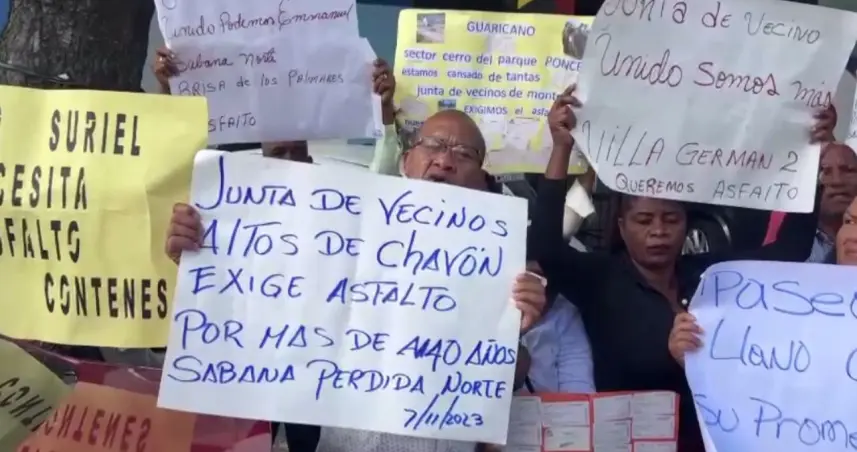 Unido Podemos
Sabana Norte
BRISA de los Palmares
ASFAlTO
GUARICANO
sector cerro del parque PONCE
estamos cansado de tantas
junta de vecinos de monte
EXIGIMOS el asfa
Junta de Vecino
Unido Somos mas
VILLA GERMAN 2
QUEREMOS ASFAlTO
SURIEL
CESITA
SFALTO
CONTENES
JUNTA DE VECINOS
AlTOS DE CHAVÓN
EXIGE ASFALTO
POR MAS DE 40 AÑOS
SABANA PERDIDA, NORTE
7/11/2023
Paseo
Llano
su Prome
CONTENES